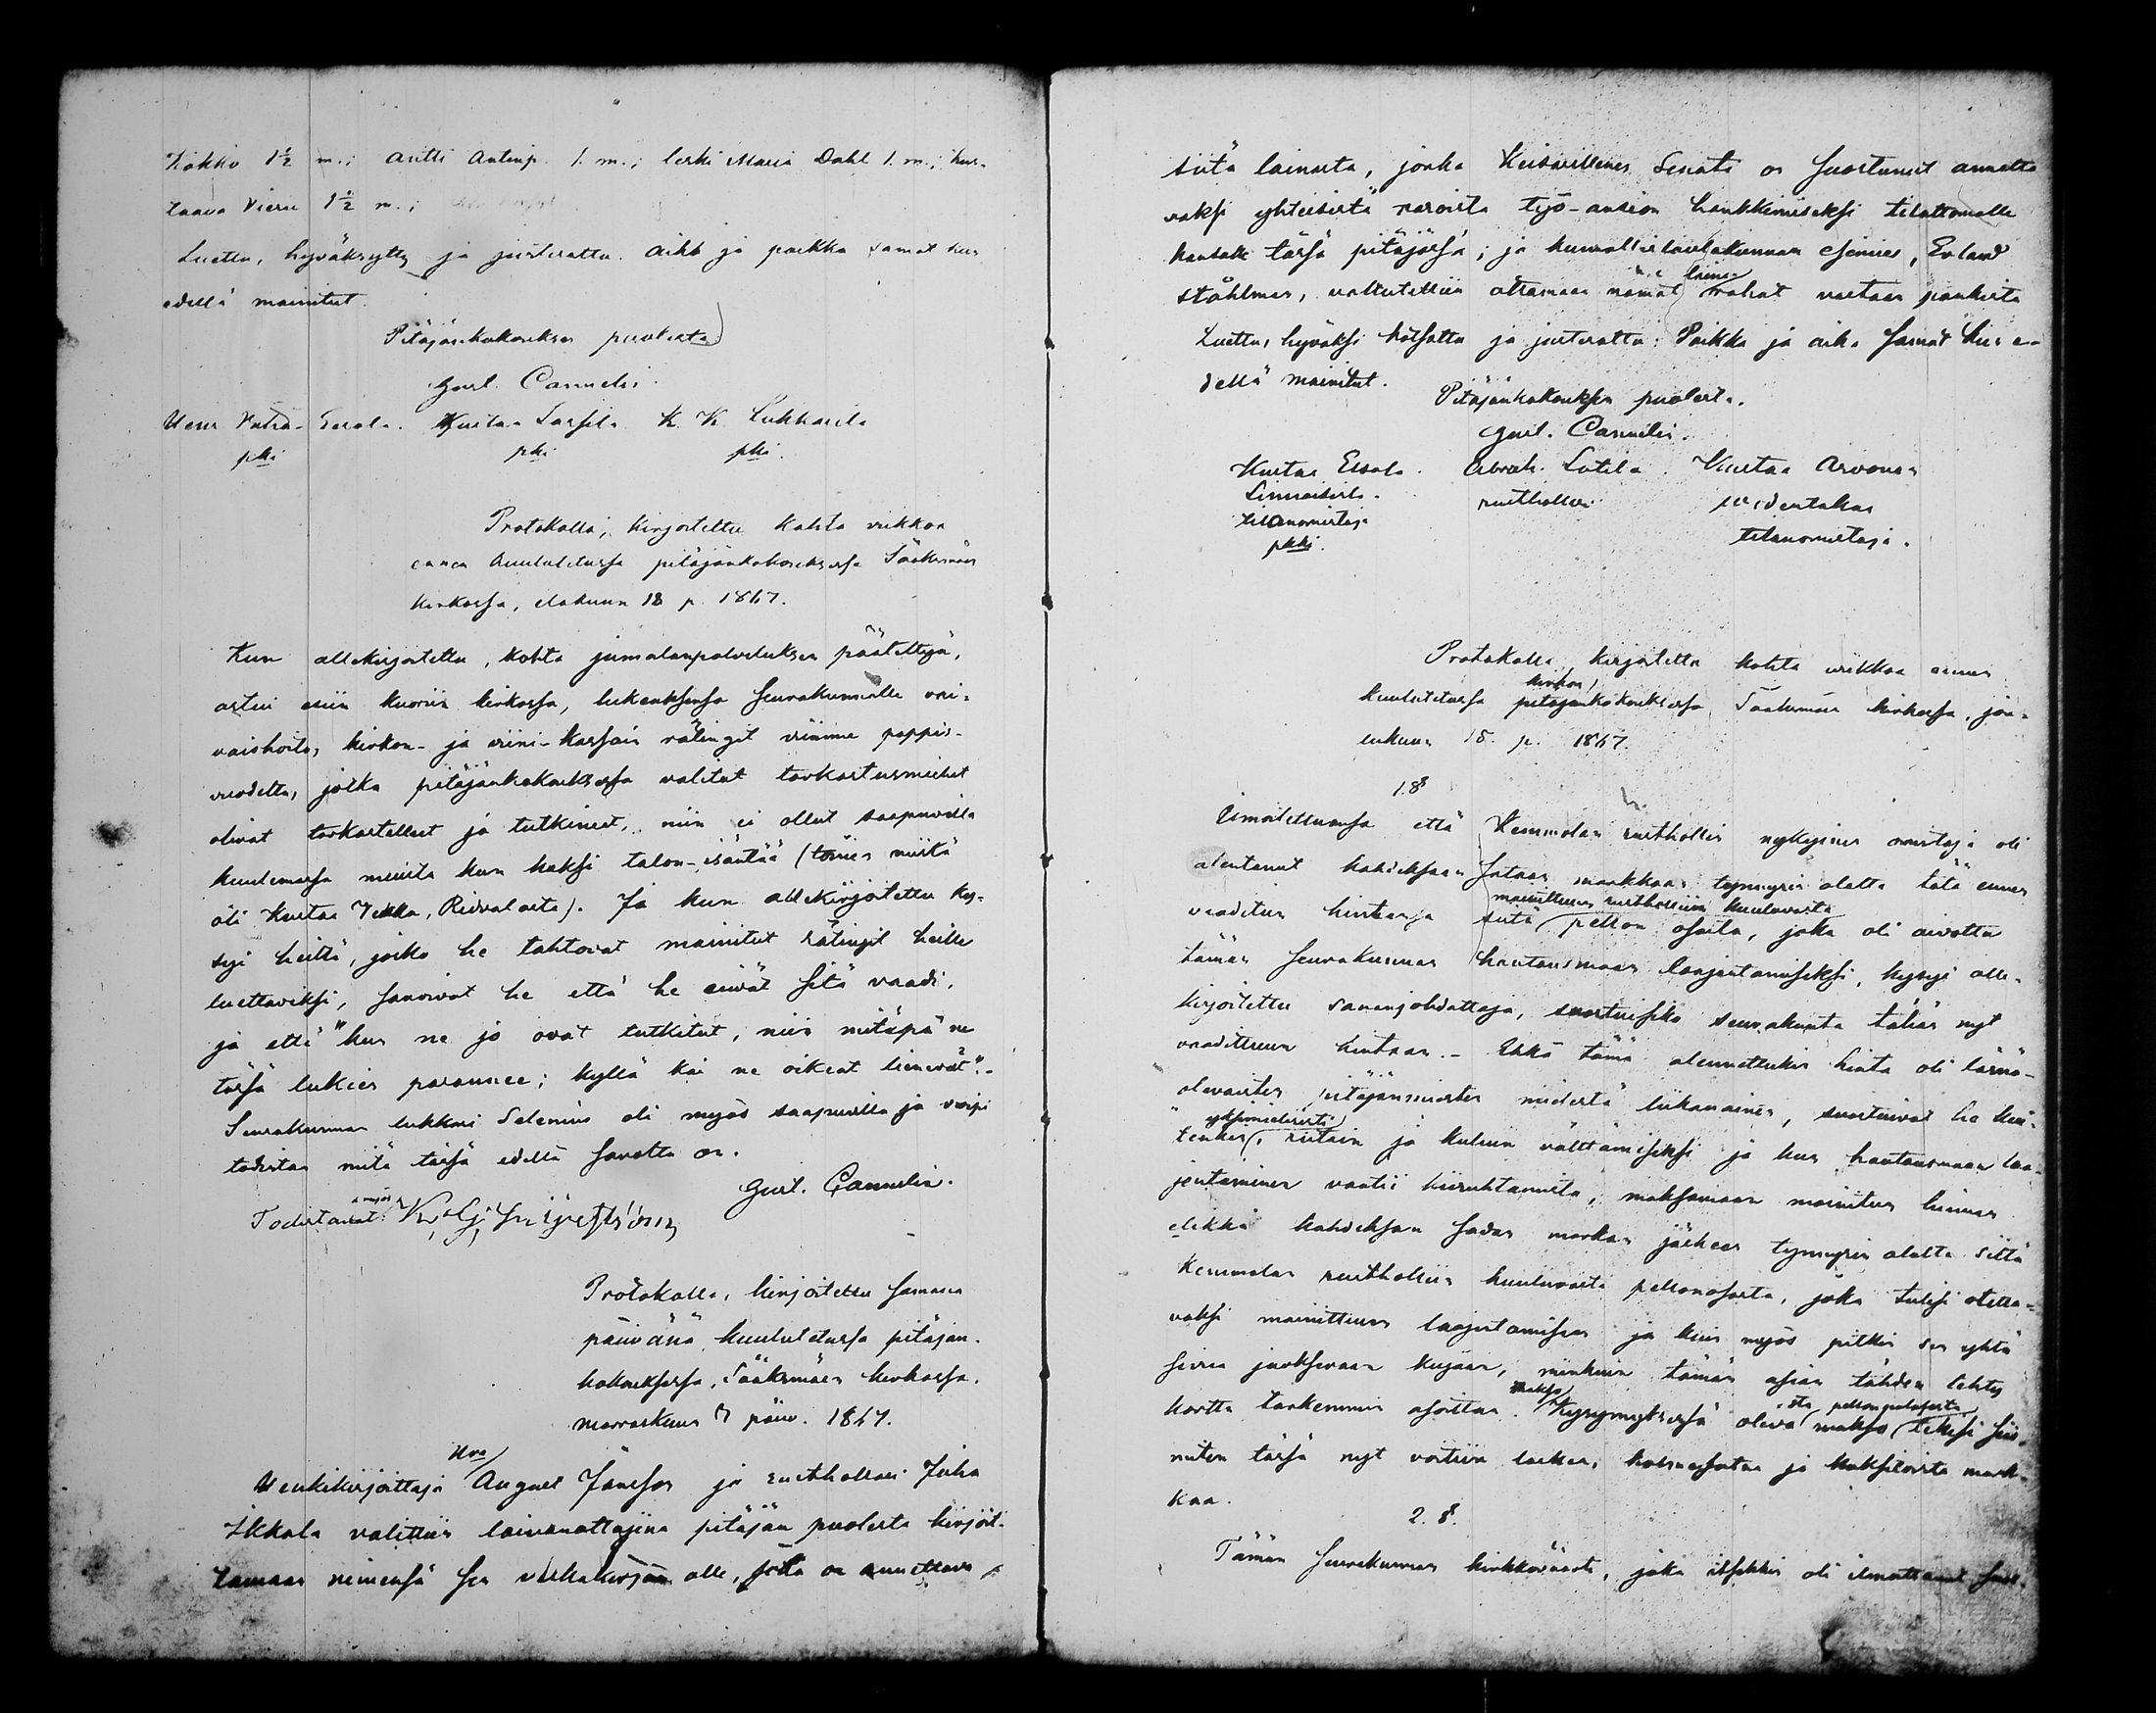 Kökkö 1½ m.; Antti Antinp. 1. m.; leski Maria Dahl 1. m.; Kus-
taava Vieru 1½ m.;
Luettu, hyväksytty ja justerattu. Aika ja paikka samat kun
edellä mainitut.
Pitäjänkokouksen puolesta
Gust. Cannelin.
Kustaa Lassila K. K. Lukkarila
pki pki pki.
Protokolla, kirjoitettu kahta viikkoa
ennen kuulutetussa pitäjänkokouksessa Sääksmäen
kirkossa, elokuun 18 p. 1867.
Kun allekirjoitettu, kohta jumalanpalveluksen päätettyä,
astui esiin kuoriin kirkossa, lukeaksensa seurakunnalle vai-
vaishoito, kirkon- ja viini-kassain rätingit viimme pappis-
vuodelta, jotka pitäjänkokouksessa valitut tarkastusmiehet
olivat tarkastelleet ja tutkineet, niin ei ollut saapuvilla
kuulemassa muita kun kaksi talon-isäntää (toinen niistä
oli Kustaa Yskkä, Ridvalasta). Ja kun allekirjoitettu ky-
syi heiltä, josko he tahtovat mainitut rätingit heille
luettaviksi, sanoivat he että he eivät sitä vaadi,
ja että "kun ne jo ovat tutkitut, niin mitäpä ne
tässä lukien paranee; kyllä kai ne oikeat lienevät".-
Seurakunnan lukkari Selenius oli myös saapuvilla ja voipi
todistaa mitä tässä edellä sanottu on.
Gust. Cannelin.
Todistavat
Protokolla, kirjoitettu samana
päivänä kuulutetussa pitäjän-
kokouksessa, Sääksmäen kirkossa,
marraskuun 17 päiv. 1867.
Hra
Henkikirjoittaja August Jansson ja rusthollari Juha
Ikkala valittiin lainanottajina pitäjän puolesta kirjoit-
tamaan nimensä sen velkakirjan alle, joka on annettava
siitä lainasta, jonka Keisarillinen Senati on suostunut annetta
vaksi yhteisistä varoista työ-ansion hankkimiseksi tilattomalle
kansalle tässä pitäjässä; ja kunnallislautakunnan esimies, Erland
laina
Ståhlman, valtutettiin ottamaan nämät rahat vastaan pankista
Luettu, hyväksi katsottu ja justerattu. Paikka ja aika samat kun e-
dellä mainitut.
Pitäjänkokouksen puolesta.
Gust. Cannelin.
Kustaa Eerola. Abrah. Lotila. Kustaa Arvonen
Linnaisista rusthollari
tilanomistaja tilanomistaja.
pkki.
Protokolla, kirjoitettu kahta viikkoa ennen
kirkon
kuulutetussa pitäjänkokouksessa Sääksmäen kirkossa, jou-
lukuun 15. p. 1867.
1.§
Ilmoitettuansa että Kemmolan rusthollin nykyinen omistaja oli
alentanut kahdeksaan sataan markkaan tynnyrin alalta tätä ennen
mainittuun rustholliin kuuluvasta
vaaditun hintansa siitä pellon osasta, joka oli aivottu
tämän seurakunnan hautausmaan laajentamiseksi, kysyi alle-
kirjoitettu sananjohdattaja, suostuisiko seurakunta tähän nyt
vaadittuun hintaan. - Ehkä tämä alennettukin hinta oli läsnä-
olevaisten pitäjänmiesten mielestä liikanainen, suostuivat he kui-
yksimielisesti
tenkin, riitain ja kulun välttämiseksi ja kun hautausmaan laa-
jentaminen vaatii kiiruhtamista, maksamaan mainitun hinnan
elikkä kahdeksan sadan markan jälkeen tynnyrin alalta siitä
Kemmolan rustholliin kuuluvasta pellonosasta, joka tulisi otetta-
vaksi mainittuun laajentamiseen ja kuin myös pitkin sen yhtä
sivua juoksevaan kujaan, minkuin tämän asian tähden tehty
maksa sta pellonpalasesta
kartta tarkemmin osoittaa. Kysymyksessä oleva maksu tekisi siis,
miten tässä nyt voitiin laskea, kolmesataa ja kaksitoista mark-
kaa.
2. §.
Tämän seurakunnan kirkkoväärti, joka itsekkin oli ilmoittanut